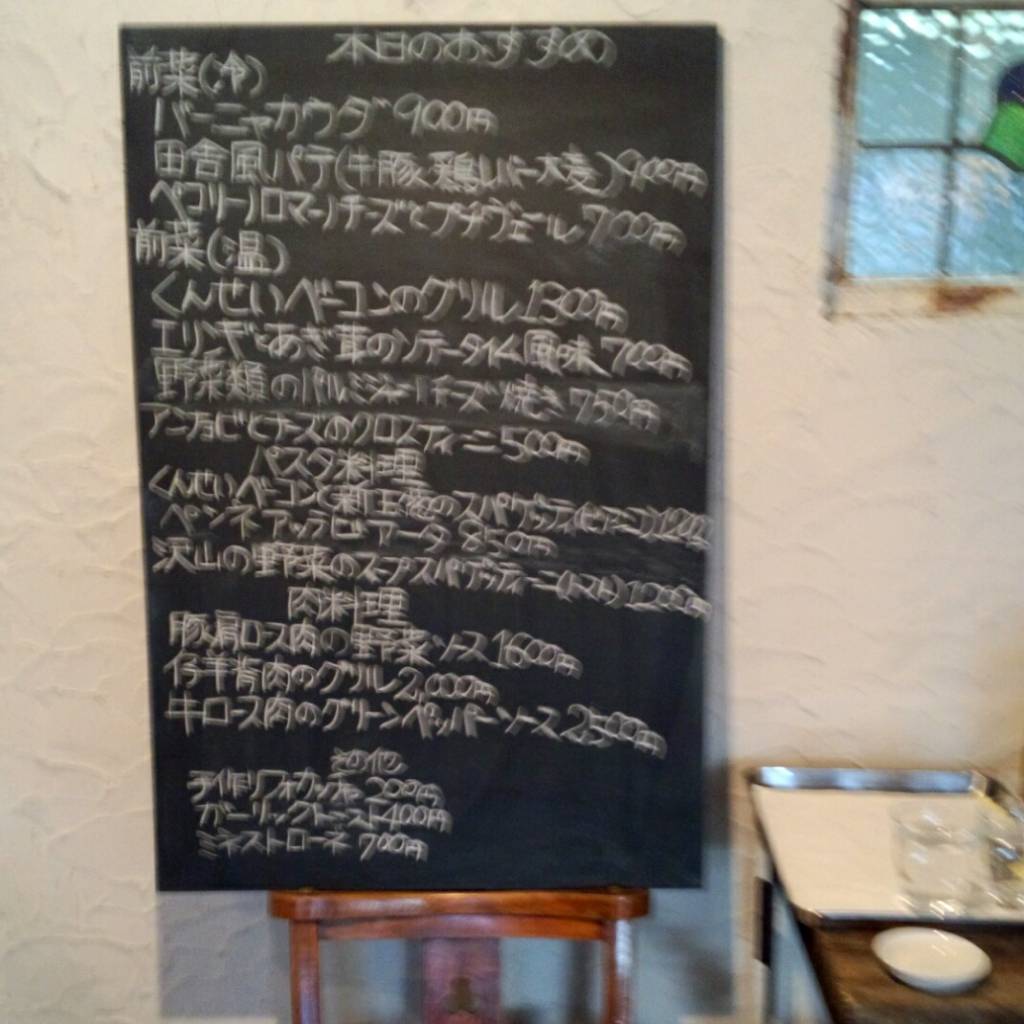 本日のおすすめ
前菜(冷)
バーニャカウダ 900円
田舎風パテ(牛豚、鶏レバー大麦)900円
ペコリーノロマーノチーズとプチヴェール 700円
前菜(温)
くんせいベーコンのグリル 1300円
エリンギとあぎ茸のソテータイム風味 700円
野菜類のパルミジャーノチーズ焼き 750円
アンチョビとチーズのクロスティーニ 500円
パスタ料理
くんせいベーコンと新玉葱のスパゲッティ(ビアンコ)1200
ペンネアッラビアータ 850円
沢山の野菜のスープスパゲッティーニ(トマト)1200円
肉料理
豚肩ロース肉の野菜ソース 1600円
仔羊背肉のグリル 2,000円
牛ロース肉のグリーンペッパーソース 2500円
その他
手作りフォカッチャ 200円
ガーリックトースト 400円
ミネストローネ 700円